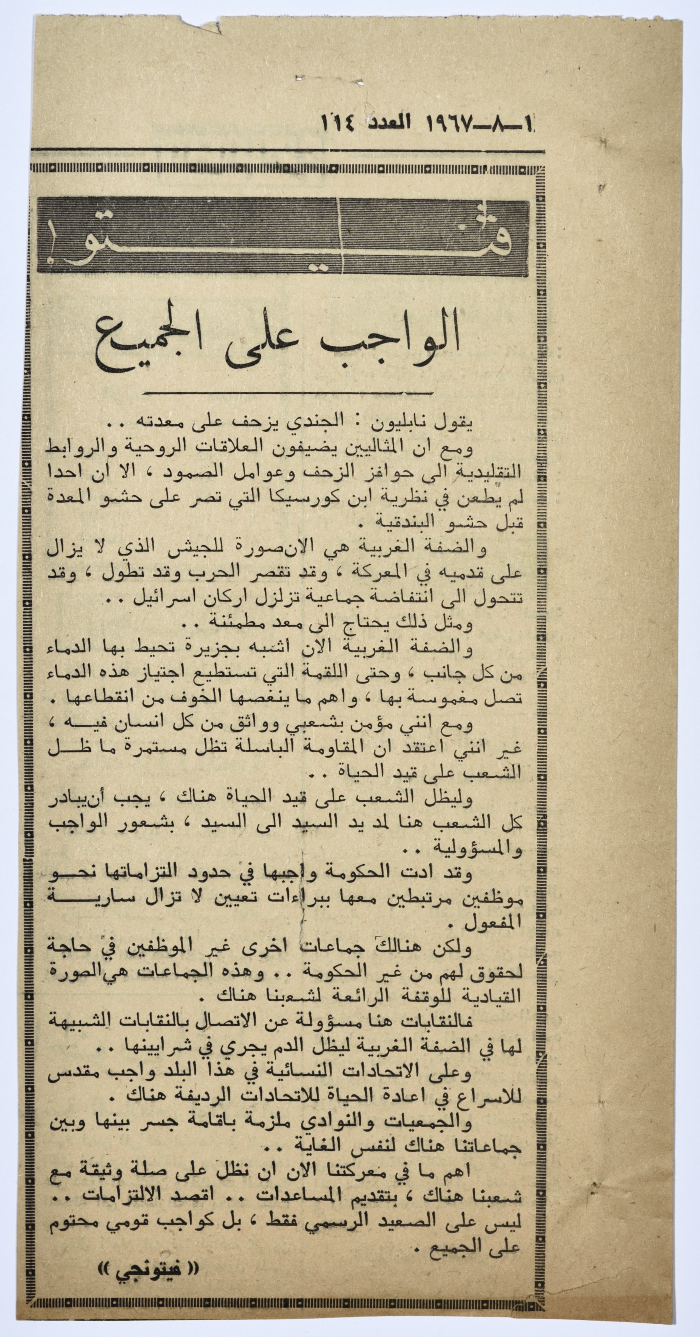 ١-٨-١٩٦٧ العدد ١١٤
فيتو!
الواجب على الجميع
يقول نابليون : الجندي يزحف على معدته ..
ومع ان المثاليين يضيفون العلاقات الروحية والروابط
التقليدية الى حوافز الزحف وعوامل الصمود ، الا ان احدا
لم يطعن في نظرية ابن كورسيكا التي تصر على حشو المعدة
قبل حشو البندقية .
والضفة الغربية هي الان صورة للجيش الذي لا يزال
على قدميه في المعركة ، وقد تقصر الحرب وقد تطول ، وقد
تتحول الى انتفاضة جماعية تزلزل اركان اسرائيل ..
ومثل ذلك يحتاج الى معد مطمئنة ..
والضفة الغربية الان اشبه بجزيرة تحيط بها الدماء
من كل جانب ، وحتى اللقمة التي تستطيع اجتياز هذه الدماء
تصل مغموسة بها ، واهم ما ينغصها الخوف من انقطاعها .
ومع انني مؤمن بشعبي وواثق من كل انسان فيه ،
غير انني اعتقد ان المقاومة الباسلة تظل مستمرة ما ظل
الشعب على قيد الحياة ..
وليظل الشعب على قيد الحياة هناك ، يجب أن يبادر
كل الشعب هنا لمد يد السيد الى السيد ، بشعور الواجب
والمسؤولية ..
وقد ادت الحكومة واجبها في حدود التزاماتها نحو
موظفين مرتبطين معها ببراءات تعيين لا تزال سارية
المفعول .
ولكن هنالك جماعات اخرى غير الموظفين في حاجة
لحقوق لهم من غير الحكومة .. وهذه الجماعات هي الصورة
القيادية للوقفة الرائعة لشعبنا هناك .
فالنقابات هنا مسؤولة عن الاتصال بالنقابات الشبيهة
لها في الضفة الغربية ليظل الدم يجري في شرايينها ..
وعلى الاتحادات النسائية في هذا البلد واجب مقدس
للاسراع في اعادة الحياة للاتحادات الرديفة هناك .
والجمعيات والنوادي ملزمة باقامة جسر بينها وبين
جماعاتنا هناك لنفس الغاية ..
اهم ما في معركتنا الان ان نظل على صلة وثيقة مع
شعبنا هناك ، بتقديم المساعدات .. اقصد الالتزامات ..
ليس على الصعيد الرسمي فقط ، بل كواجب قومي محتوم
على الجميع .
« فيتونجي »